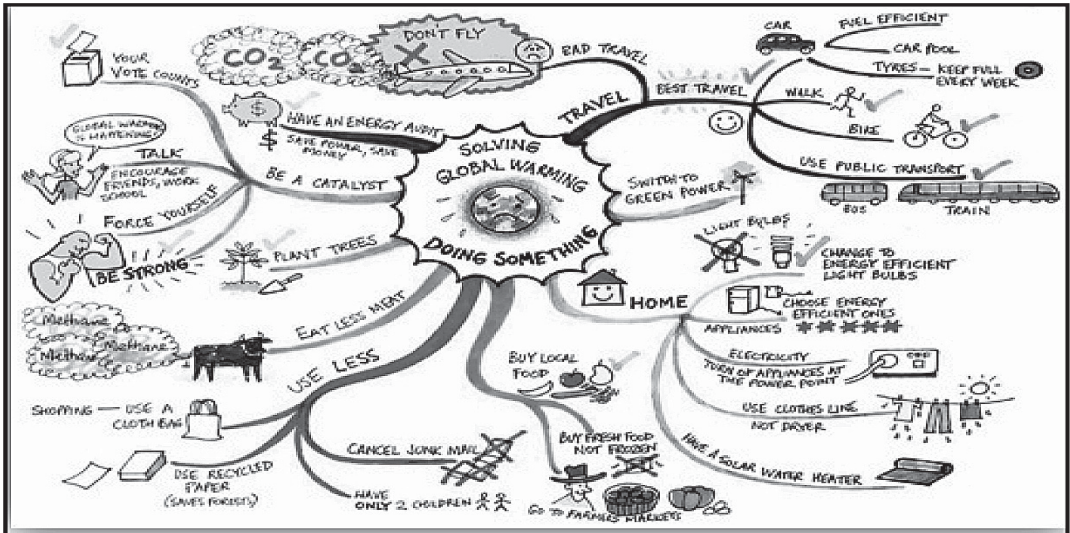 SOLVING
GLOBAL WARMING
DOING SOMETHING
TRAVEL
BAD TRAVEL
DON'T FLY
CO2
CO2
BEST TRAVEL
CAR
FUEL EFFICIENT
CAR POOL
TYRES — KEEP FULL
EVERY WEEK
WALK
BIKE
USE PUBLIC TRANSPORT
BUS
TRAIN
SWITCH TO
GREEN POWER
HOME
LIGHT BULBS
CHANGE TO
ENERGY EFFICIENT
LIGHT BULBS
APPLIANCES
CHOOSE ENERGY
EFFICIENT ONES
ELECTRICITY
TURN OF APPLIANCES AT
THE POWER POINT
OFF
USE CLOTHES LINE
NOT DRYER
HAVE A SOLAR WATER HEATER
BUY LOCAL
FOOD
BUY FRESH FOOD
NOT FROZEN
GO TO FARMERS MARKETS
USE LESS
CANCEL JUNK MAIL
HAVE
ONLY 2 CHILDREN
USE RECYCLED
PAPER
(SAVES FORESTS)
SHOPPING — USE A
CLOTH BAG
EAT LESS MEAT
Methane
Methane
Methane
PLANT TREES
BE A CATALYST
YOUR
VOTE COUNTS
TALK
ENCOURAGE
FRIENDS, WORK
SCHOOL
GLOBAL WARMING
IS HAPPENING!
FORCE YOURSELF
BE STRONG
HAVE AN ENERGY AUDIT
$ SAVE POWER, SAVE
MONEY
$